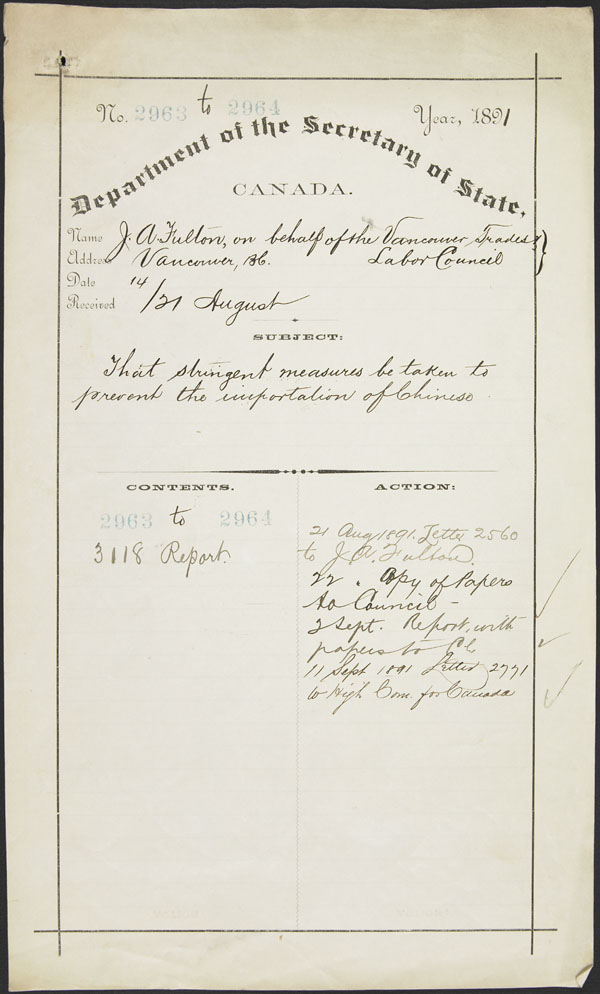 No. 2963 to 2964 Year, 1891
Department of the Secretary of State.
CANADA.
Name J. A. Fulton, on behalf of the Vancouver Trades &
Address Vancouver, BC. Labor Council
Date 14
Received /21 August
SUBJECT:
That stringent measures be taken to
prevent the importation of Chinese
CONTENTS.
2963 to 2964
3118 Report.
ACTION:
21 Aug 1891. Letter 2560
to J. A. Fulton.
22 . Copy of Papers
to Council -
2 Sept. Report, with
papers to
11 Sept 1891 Letter 2771
to High Com. for Canada